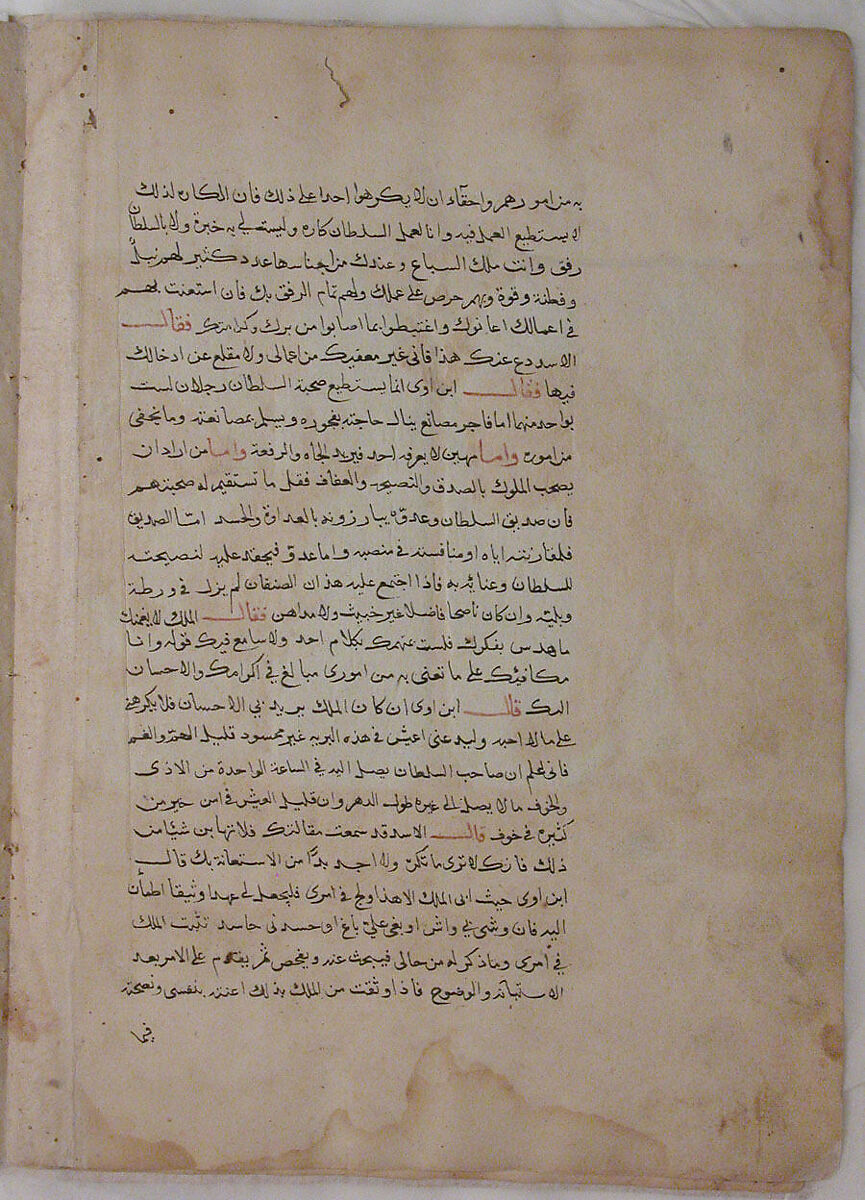 به من امورهم واحقاء ان لا يكرهوا احدا على ذلك فان الكاره لذلك
لا يستطيع العمل فيه وانا لعمل السلطان كاره وليست لي به خبرة ولا بالسلطان
رفق وانت ملك السباع وعندك من اجناسها عدد كثير لهم نبل
وفطنة وقوة وبهم حرص على عملك ولهم تمام الرفق بك فان استعنت بهم
في اعمالك اعانوك واغتبطوا بما اصابوا من برك وكرامتك فقال
الاسد دع عنك هذا فاني غير معفيك من اعمالي ولا مقلع عن ادخالك
فيها فقال ابن اوى انما يستطيع صحبة السلطان رجلان لست
بواحد منهما اما فاجر مصانع ينال حاجته بفجوره ويسلم بمصانعته وما يخفى
من اموره واما مهين لا يعرفه احد فيريد الجاه والرفعة واما من اراد ان
يصحب الملوك بالصدق والنصيحة والعفاف فقل ما تستقيم له صحبتهم
فان صديق السلطان وعدوه يبارزونه بالعداوة والحسد امّا الصديق
فلمغارته اياه او منافسته في منصبه واما عدو فيحقد عليه لنصيحته
للسلطان وعنايته به فاذا اجتمع عليه هذان الصنفان لم يزل في ورطة
وبلية وان كان ناصحا فاضلا غير خبيث ولا مداهن فقال الملك لا يغمنك
ما هدس بفكرك فلست متهمك بكلام احد ولا سامع فيك قوله وانا
مكافيك على ما تعنى به من اموري مبالغ في اكرامك والاحسان
اليك قال ابن اوى ان كان الملك يريد بي الاحسان فلا يكرهني
على ما لا احبه وليدعني اعيش في هذه البريه غير محسود قليل الهم والغم
فاني لمعلم ان صاحب السلطان يصل اليه في الساعة الواحدة من الاذى
والخوف ما لا يصل الى غيره طول الدهر وان قليل العيش في امن خير من
كثيره في خوف قال الاسد قد سمعت مقالتك فلا تهابن شيئا من
ذلك فانك لا ترى ما تكره ولا اجد بدّا من الاستعانة بك قال
ابن اوى حيث ابى الملك الا هذا ولج في امرى فليجعل لي عهدا وثيقا اطمأن
اليه فان وشى بي واش او بغى عليّ باغ او حسدني حاسد تثبت الملك
في أمرى وما ذكر له من حالى فيبحث عنه ويفحص ثم يقدم على الامر بعد
الاستبانه والوضوح فاذا وثقت من الملك بذلك اعنته بنفسى ونصحته
فيما